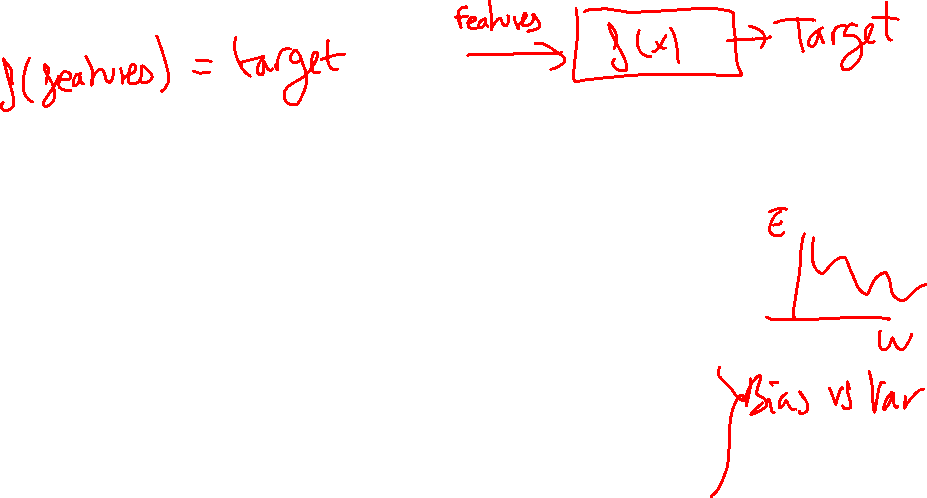 features
f(x)
Target
f(features) = target
E
W
Bias vs Var